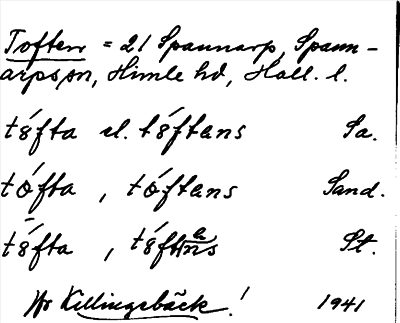 Toften = 21 Spannarp, Spann-
arps sn, Himle hd, Hall. l.
tófta el. tóftens Sa.
tófta , tóftens Sand.
tófta , tóftens St.
Killingsbäck! 1941